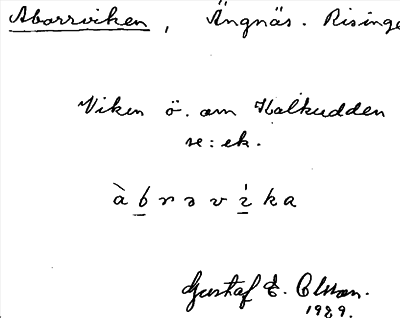 Aborrviken, Ängnäs. Risinge
Viken ö. om Kalkudden
se: ek.
à b r ə v i k a
Gustaf E. Olsson.
1929.